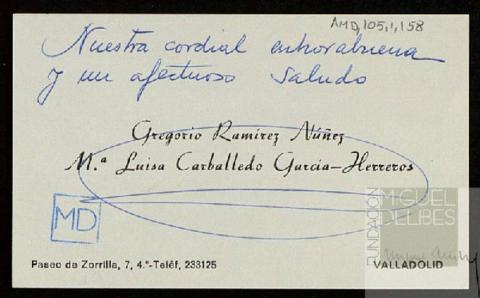 AMD,105,1,158
Nuestra cordial enhorabuena
y un afectuoso saludo
Gregorio Ramírez Núñez
M.ª Luisa Carballedo García-Herreros
MD
FUNDACIÓN
MIGUEL
DELIBES
Paseo de Zorrilla, 7, 4.º-Teléf, 233125
VALLADOLID